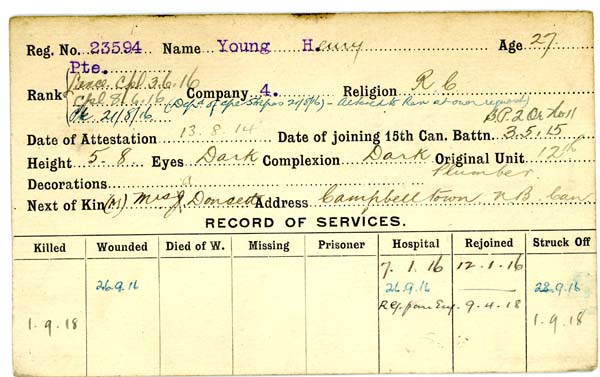 Reg. No. 23594 Name Young Henry Age 27
Pte.
Lance Cpl 3.6.16
Rank Cpl 8.6.16 Company 4. Religion R.C.
Pte 21/8/16 (Dept of Cpl Stripes 21/8/16) - at own request)
B.P. 2 Or
Date of Attestation 13.8.14 Date of joining 15th Can. Battn. 3.5.15
Height 5-8 Eyes Dark Complexion Dark Original Unit 12th
Plumber
Decorations
Next of Kin (M) Mrs J Address Campbelltown N.B. Can
RECORD OF SERVICES.
Killed Wounded Died of W. Missing Prisoner Hospital Rejoined Struck Off
7.1.16 12.1.16
26.9.16 26.9.16 28.9.16
Rejf from Eng. 9.4.18
1.9.18 1.9.18